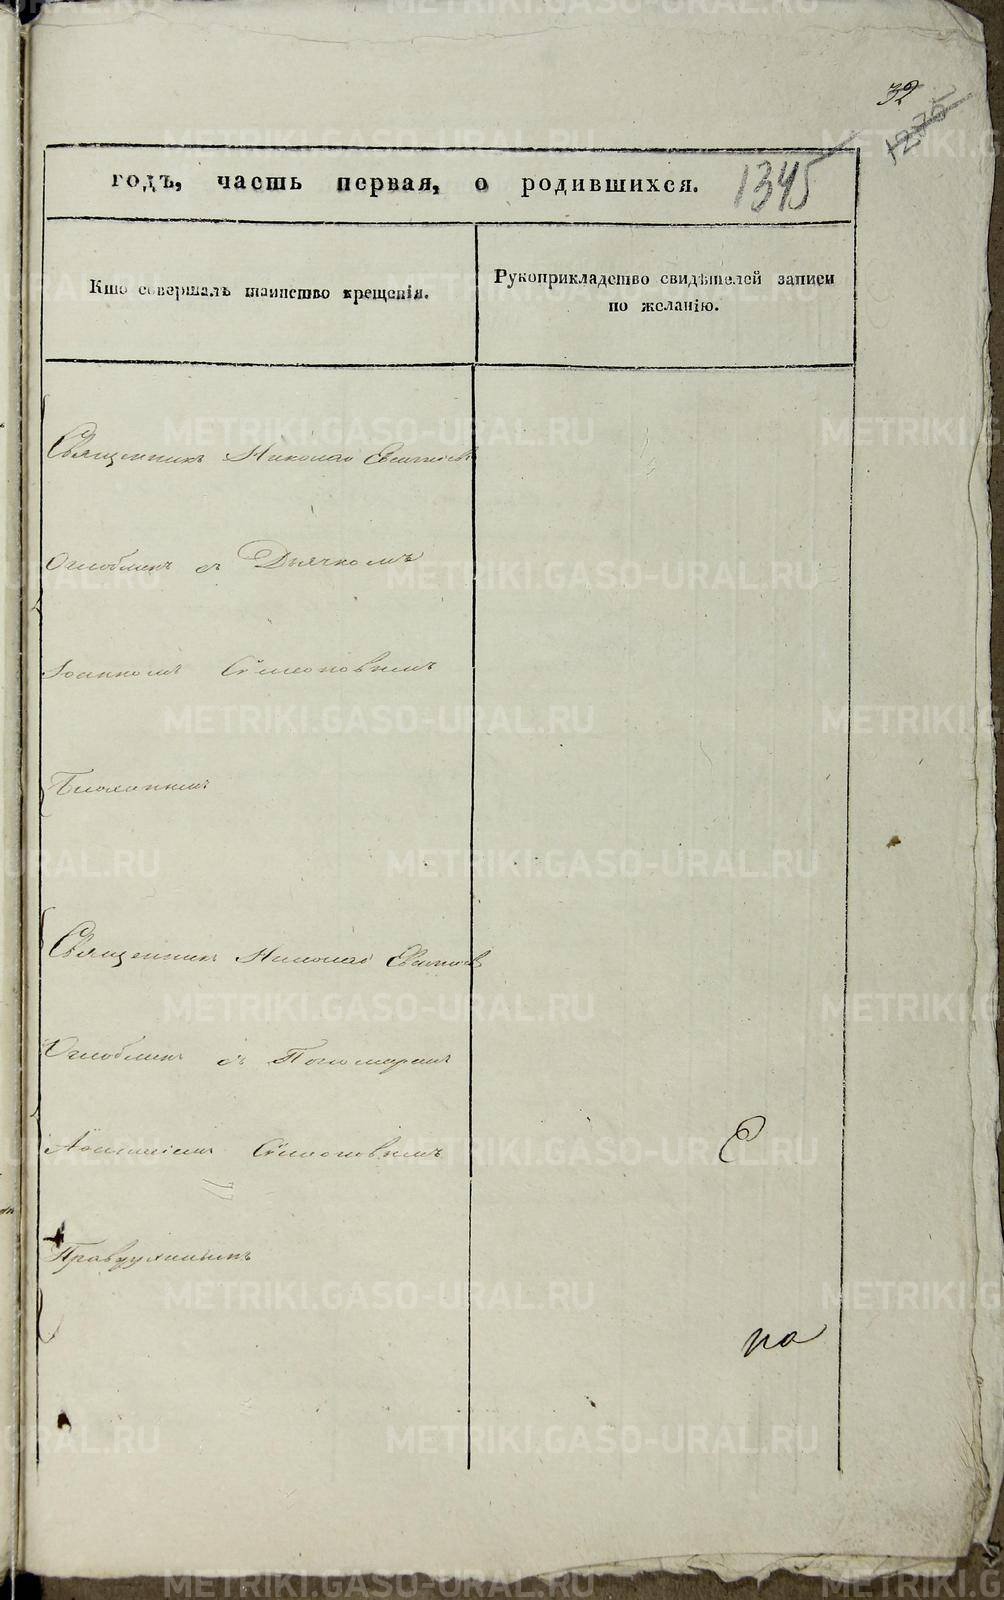 32
1275
годъ, часть первая, о родившихся. 1345
Кто совершалъ таинство крещенія.
Рукоприкладство свидѣтелей записи
по желанію.
Священникъ Николай Евтихіевъ
Оглоблинъ съ Дьячкомъ
Іоанномъ Симеоновымъ
Священникъ Николай Евтихіевъ
Оглоблинъ съ Пономаремъ
Симеоновымъ
С
Правдухинымъ
по
METRIKI.GASO-URAL.RU